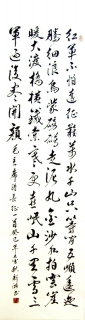 红军不怕远征难万水千山只等闲五岭逶迤
腾细浪乌蒙磅礴走泥丸金沙水拍云崖
暖大渡桥横铁索寒更喜岷山千里雪三
军过后尽开颜
毛主席诗长征一首